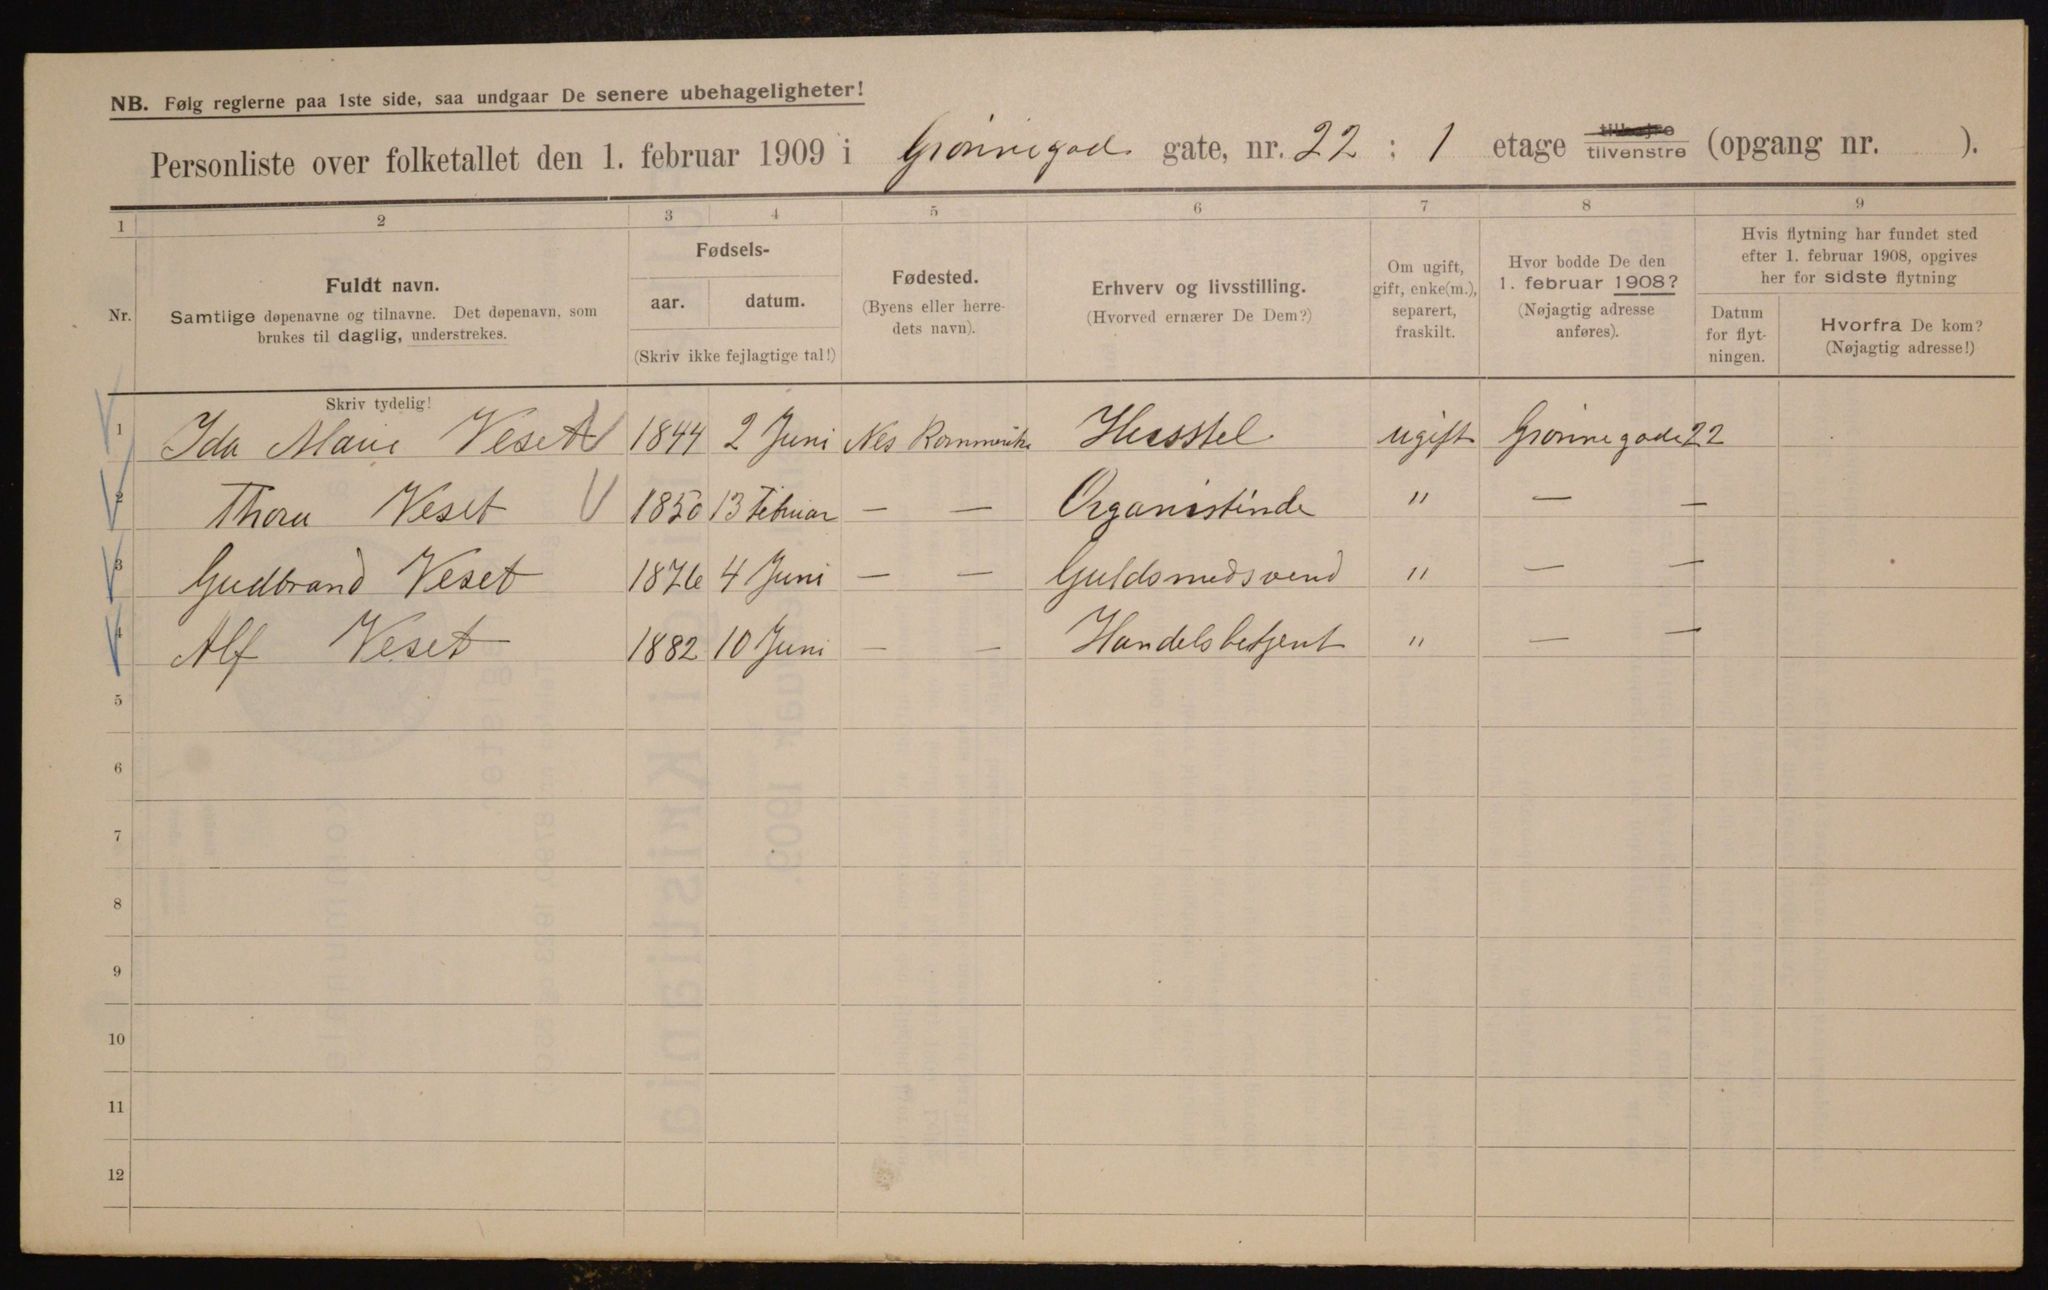 NB. Følg reglerne paa 1ste side, saa undgaar De senere ubehageligheter!
Personliste over folketallet den 1. februar 1909 i Grønnegad. gate, nr. 22 ; 1 etage tilhøjre tilvenstre (opgang nr. ).
1 2 3 4 5 6 7 8 9
Nr. Fuldt navn. Samtlige døpenavne og tilnavne. Det døpenavn, som brukes til daglig, understrekes. Skriv tydelig!
Fødsels- aar. datum. (Skriv ikke fejlagtige tal!)
Fødested. (Byens eller herredets navn).
Erhverv og livsstilling. (Hvorved ernærer De Dem?)
Om ugift, gift, enke(m.), separert, fraskilt.
Hvor bodde De den 1. februar 1908? (Nøjagtig adresse anføres).
Hvis flytning har fundet sted efter 1. februar 1908, opgives her for sidste flytning
Datum for flytningen.
Hvorfra De kom? (Nøjagtig adresse!)
1 Ida Marie Veset 1844 2 Juni Nes Husstel ugift Grønnegade 22
2 Thora Veset 1850 13 Februar — — Organistinde " — —
3 Gudbrand Veset 1876 4 Juni — — Guldsmedsvend " — —
4 Alf Veset 1882 10 Juni — — Handelsbetjent " — —
5
6
7
8
9
10
11
12